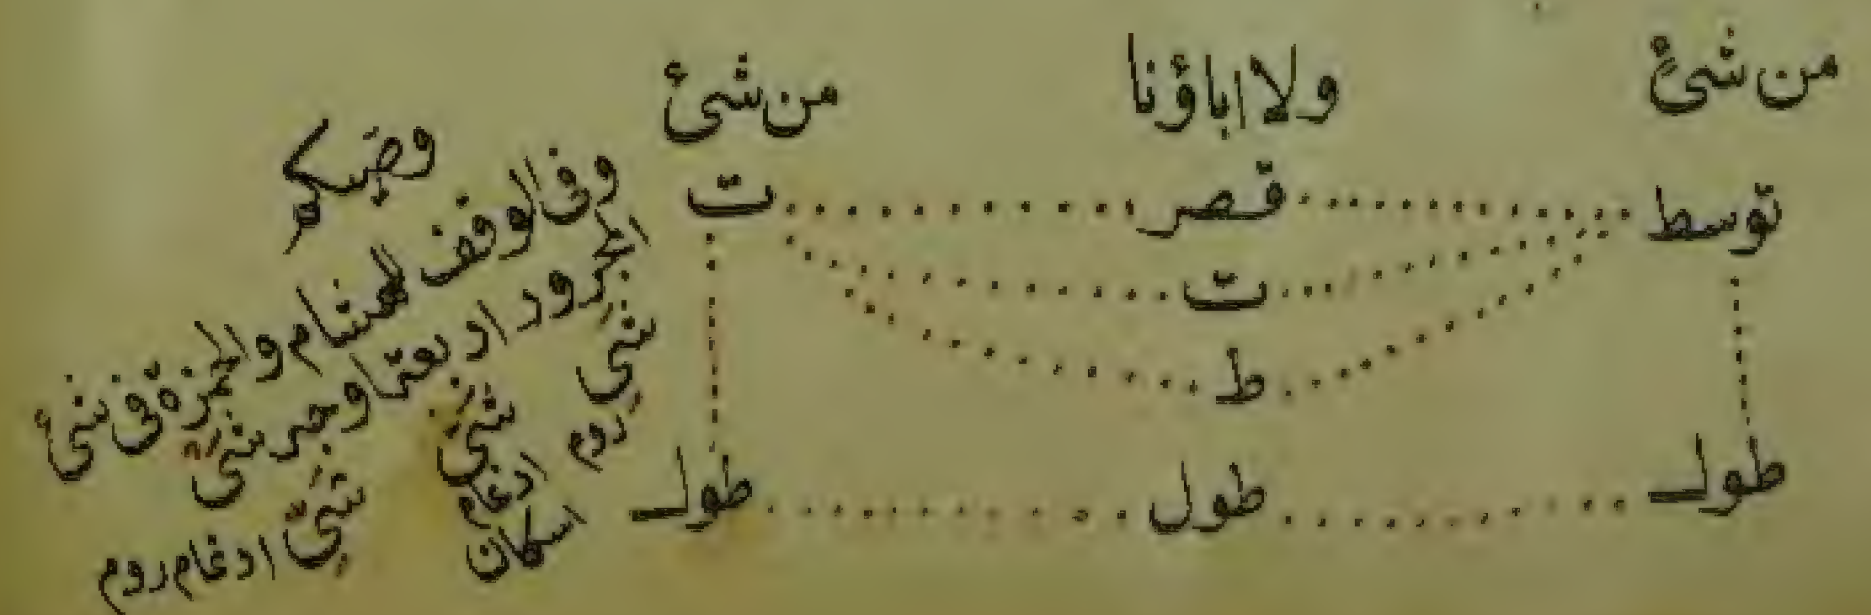 من شئٍ ولا اباؤنا من شئ
توسط قصر ت
ت
ط
طول طول طول
وفى الوقف لهشام والهمزة فى شئ
المجرور اربعة اوجه شى
شى روم
شىّ ادغام اسكان
شىّ ادغام روم